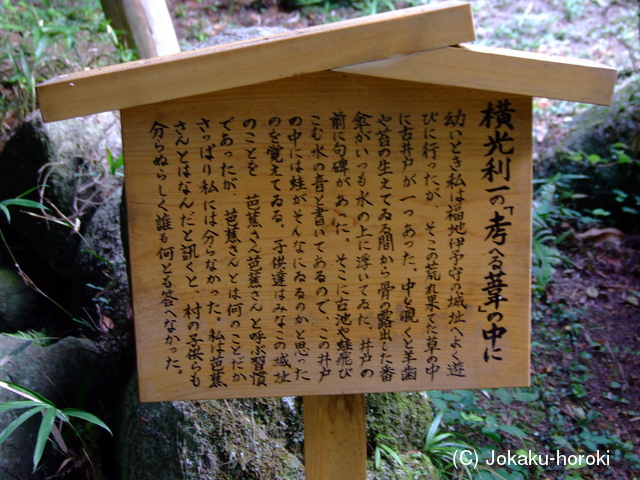 横光利一の「考へる葦」の中に
幼いとき私は福地伊予守の城址へよく遊
びに行ったが、そこの荒れ果てた草の中
に古井戸が一つあった。中を覗くと羊歯
や苔の生えてゐる間から骨の露出した番
傘がいつも水の上に浮いてゐた。井戸の
前に句碑があった。そこに古池や蛙飛び
こむ水の音と書いてあるので、この井戸
の中には蛙がそんなにゐるのかと思った
のを覚えてゐる。子供達はみなこの城址
のことを 芭蕉さん芭蕉さんと呼ぶ習慣
であったが、芭蕉さんとは何のことだか
さっぱり私には分らなかった。私は芭蕉
さんとはなんだと訊くと、村の子供らも
分らぬらしく誰も何とも答へなかった。
(C) Jokaku-horoki